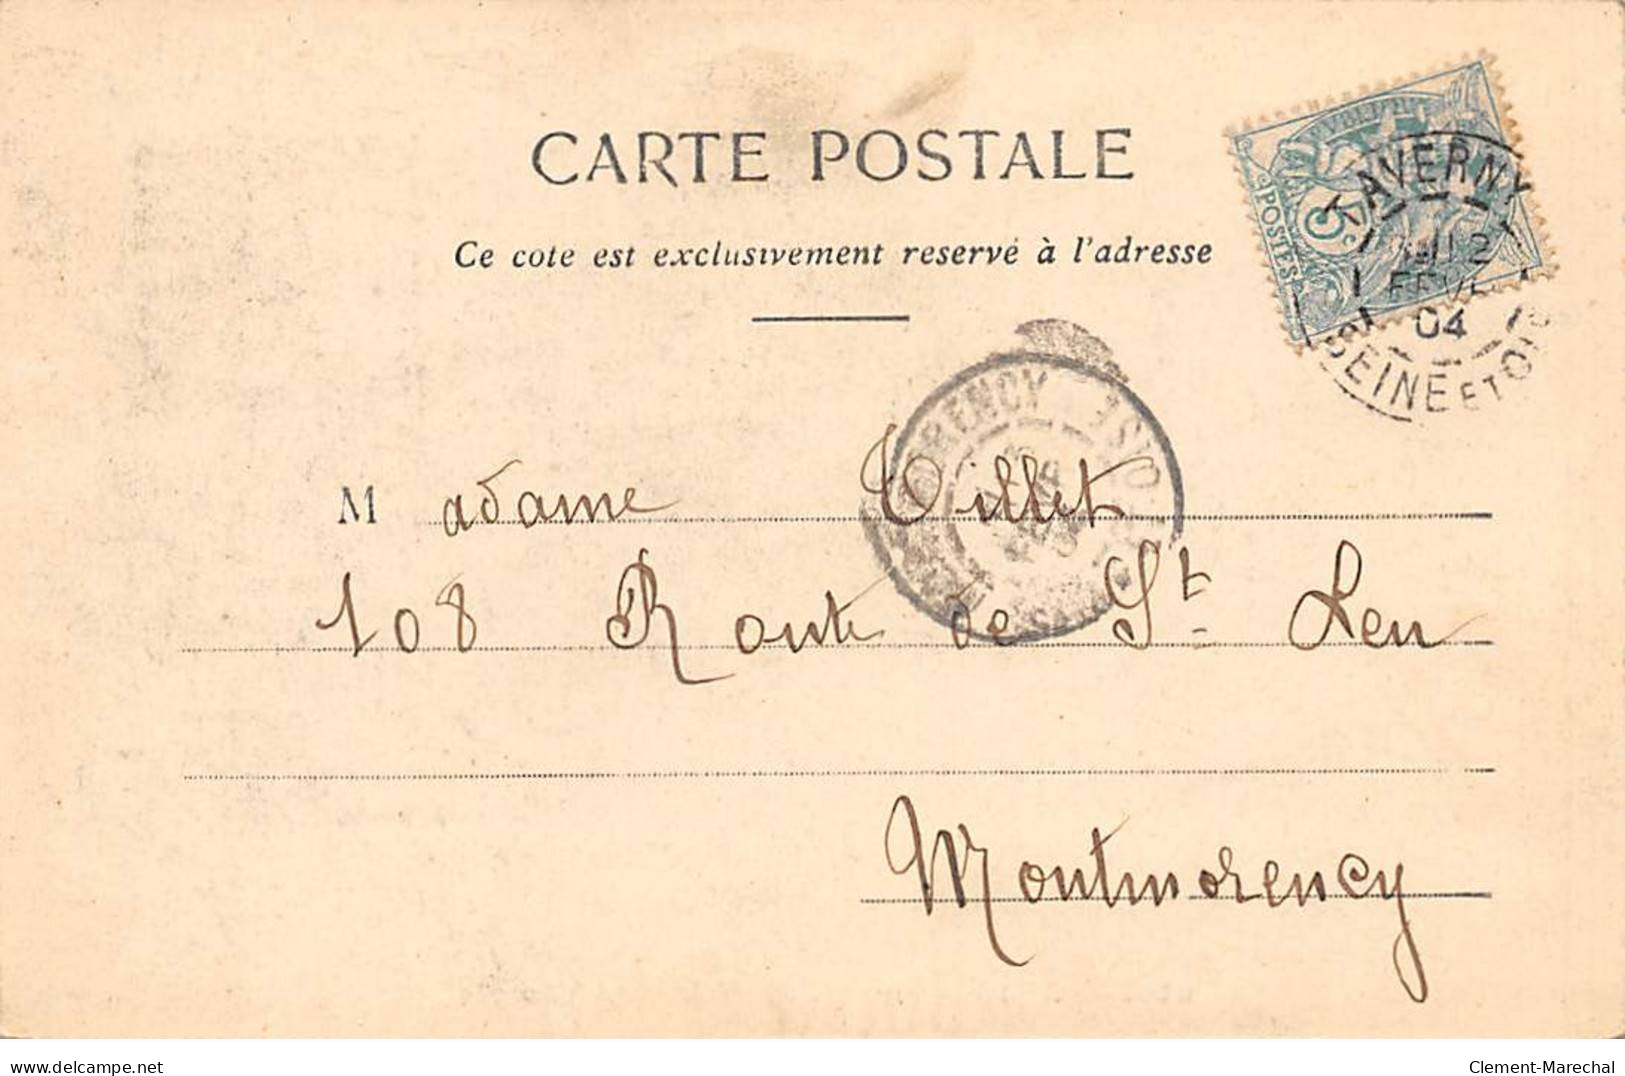 CARTE POSTALE
Ce cote est exclusivement reservé à l'adresse
POSTES
5 c
TAVERNY
2
FEVR
04
SEINE ET OISE
Madame Tillet
108 Route de St Leu
Montmorency
delcampe.net
Clement-Marechal